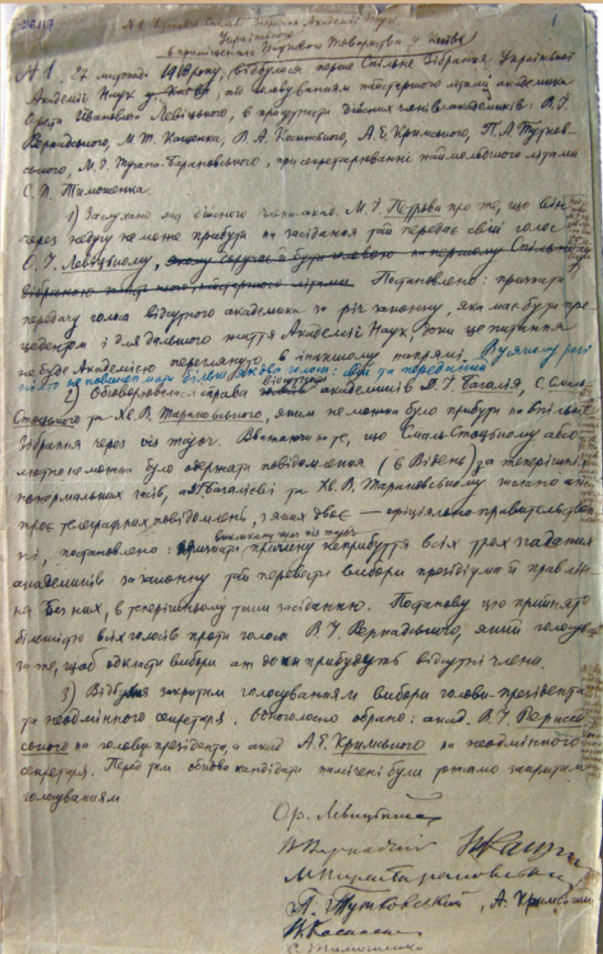 № 1. Спільне Зібрання Академії Наук.
Української
в помешканні Наукового Товариства у Києві
1
№ 1. 27 листопада 1918 року, відбулося перше Спільне Зібрання Української
Академії Наук у Києві, під головуванням найстаршого літами академика
Ореста Ивановича Левіцького, в присутности дійсних членів академиків: В. І.
Вернадського, М. Т. Кащенка, В. А. Косинського, А. Е. Кримського, П. А. Тутков-
ського, М. І. Тугана-Барановського, при секретарюванні наймолодшого літами
С. П. Тимошенка.
1) Заслухано дійсного члена акад. М. І. Петрова про те, що він
через недугу не може прибути на засідання та й передає свій голос
О. І. Левіцькому, бути головою на першому Спільному
Зібранню найстаршого літами. Постановлено: признати
передачу голоса відсутного академика за річ законну, яка має бути пре-
цедентом і для дальшого життя Академії Наук, доки це питання
не буде Академією переглянуто в інакшому напрямі. В усякому разі
ніхто не повинен мати більш як два голоси: свій та переданий
2) Обмірковувалася справа відсутніх академиків Д. І. Багалія, С. Смаль-
Стоцького та Хв. В. Тарановського, яким не можна було прибути на Спільне
Зібрання через від'їзд. Вважаючи на те, що Смаль Стоцькому абсо-
лютно не можна було одержати повідомлення (в Відень) за теперішніх
ненормальних часів, а Багалієві та Хв. В. Тарановському заслано аж
троє телеграфних повідомлень, з яких двоє — офіціяльно-правительствен-
ні, постановлено: признати причину неприбуття всіх трох згаданих
академиків за законну та й перевести вибори президіума й правлін-
ня без них, в теперішньому таки засіданню. Постанову цю прийнято
більшістю всіх голосів проти голоса В. І. Вернадського, який голосував
за те, щоб одкласти вибори аж доки прибудуть відсутні члени.
3) Відбулися закритим голосуванням вибори голови-президента
та неодмінного секретаря. Одноголосно обрано: акад. В. І. Вернад-
ського на голову-президента, а акад А. Е. Кримського на неодмінного
секретаря. Перед тим обидва кандидати намічені були так само закритим
голосуванням
Ор. Левицький
В Вернадский Н Кащенко
М Туган Барановський
П. Тутковський, А. Кримський
В. Косинский
С. Тимошенко